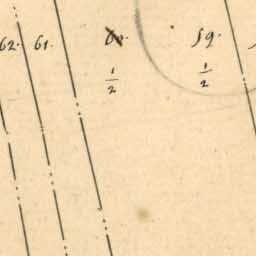 62. 61. 60. 59.
1/2 1/2